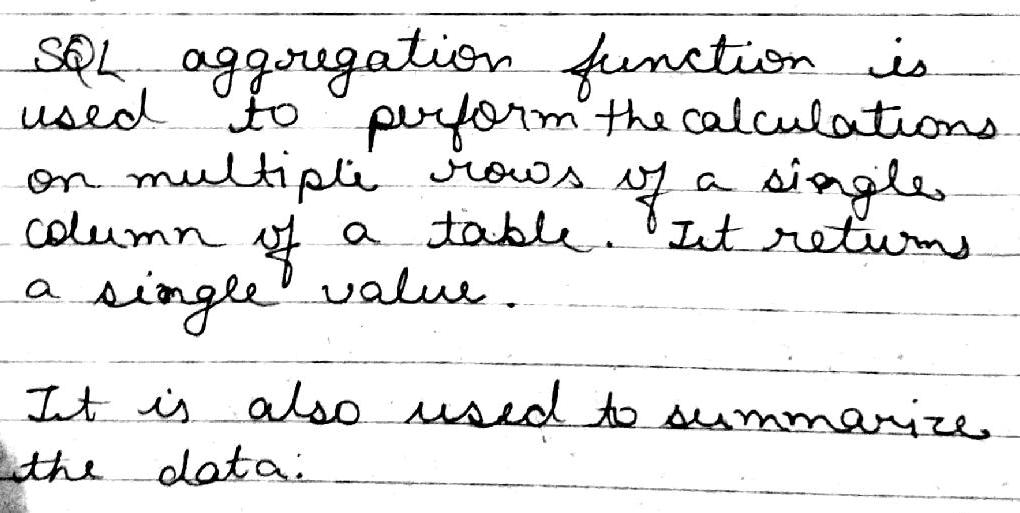 SQL aggregation function is
used to perform the calculations
on multiple rows of a single
column of a table. It returns
a single value.
It is also used to summarize
the data.